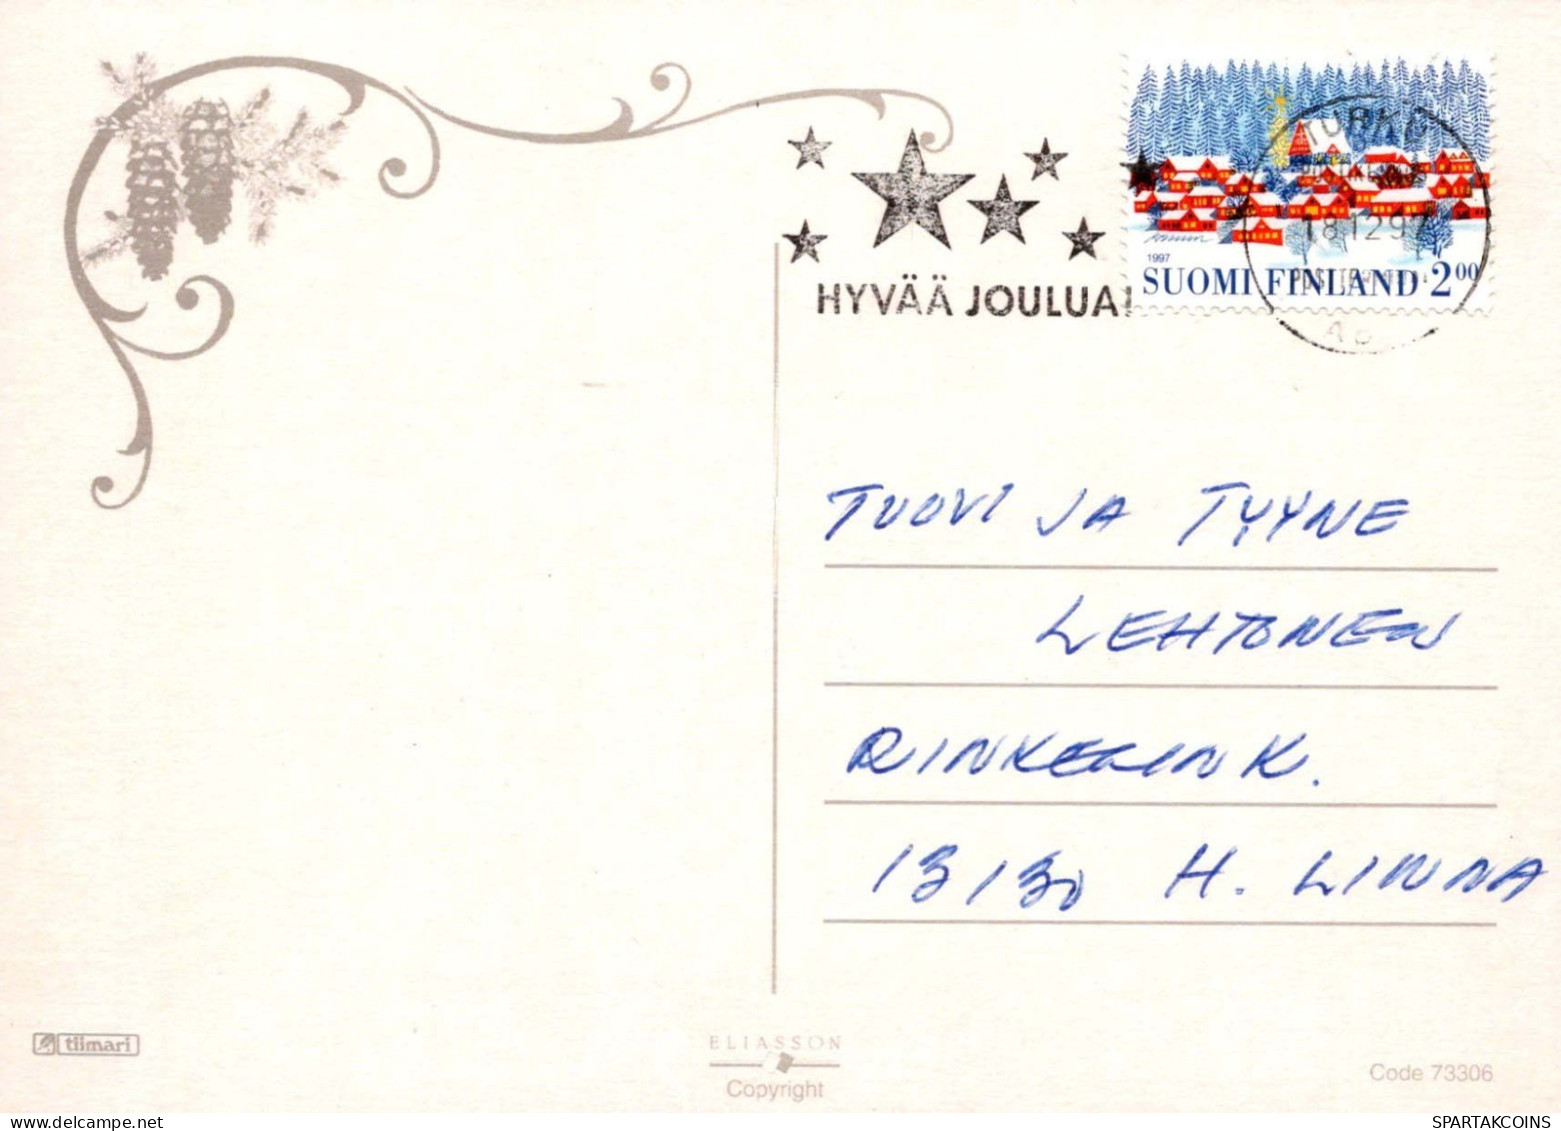 HYVÄÄ JOULUA!
TURKU
18.12.97
1997
SUOMI FINLAND 2.00
TUOVI JA TYYNE
LEHTONEN
RINKELINK.
13130 H. LINNA
tiimari
ELIASSON
Copyright
Code 73306
SPARTAKCOINS